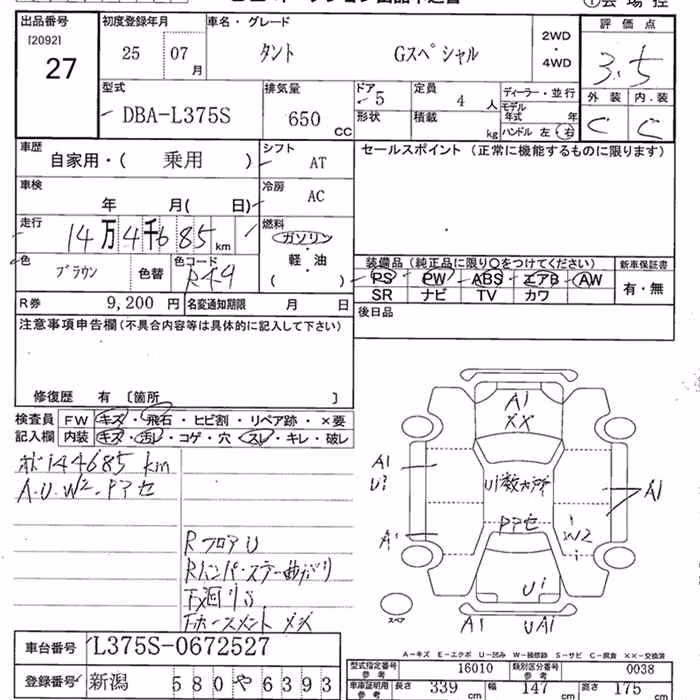 出品番号 [2092] 27
初度登録年月 25 07 月
車名・グレード タント Gスペシャル
2WD・4WD
評価点 3.5
外装 C 内装 C
型式 DBA-L375S
排気量 650 CC
ドア 5 形状
定員 4 人
積載 kg
ディーラー・並行
モデル年式 年
ハンドル 左 右
車歴 自家用・( 乗用 )
シフト AT
セールスポイント (正常に機能するものに限ります)
車検 年 月( 日)
冷房 AC
走行 14万4千685 km
燃料 ガソリン・軽・油 ( )
色 ブラウン 色替 色コード R49
装備品 (純正品に限り○をつけてください)
PS PW ABS エアB AW
SR ナビ TV カワ
新車保証書 有・無
R券 9,200 円 名変通知期限 月 日
後日品
注意事項申告欄 (不具合内容等は具体的に記入して下さい)
修復歴 有 〔箇所 〕
検査員記入欄
FW キズ・飛石・ヒビ割・リペア跡・×要
内装 キズ・汚レ・コゲ・穴・スレ・キレ・破レ
144685 km
A.U.W2.アアセ
RフロアU
Rバンパ・ステー曲がり
下廻りS
A1
XX
A1
U2
U1数ヶ所
A1
A1
アアセ
W2
U1
A1
UA1
スペア
A-キズ E-エクボ U-凹み W-補修跡 S-サビ C-腐食 XX-交換済
車台番号 L375S-0672527
登録番号 新潟 580や6393
型式指定番号 参考 16010
類別区分番号 参考 0038
車庫証明用 参考 長さ 339 cm 幅 147 cm 高さ 175 cm